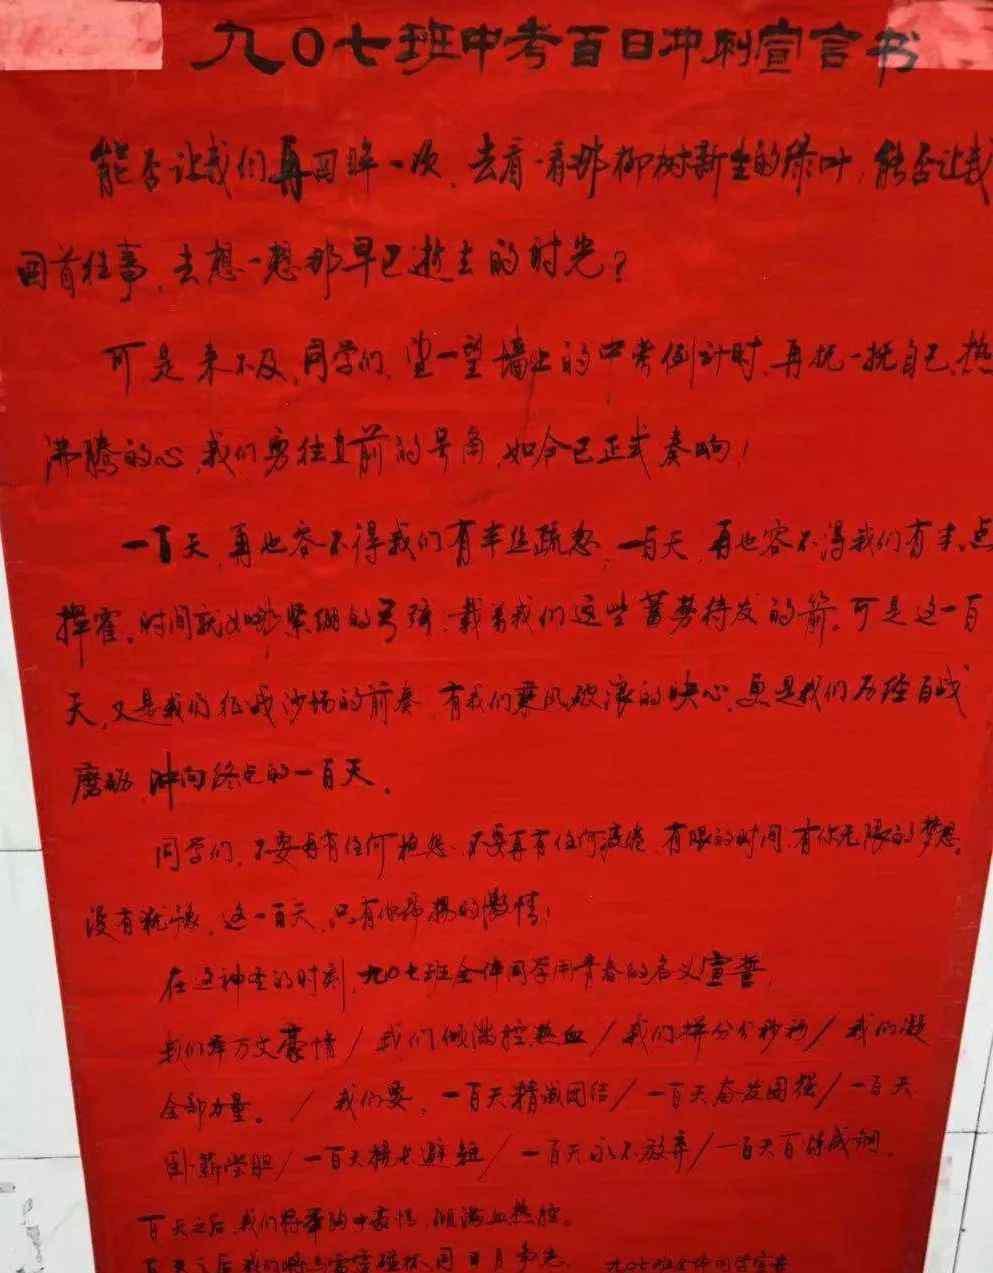 九〇七班中考百日冲刺宣言书
能否让我们再回眸一次,去看一看那柳树新生的绿叶,能否让我
回首往事,去想一想那早已逝去的时光?
可是来不及,同学们,望一望墙上的中考倒计时,再抚一抚自己热
沸腾的心,我们勇往直前的号角,如今已正式奏响!
一百天,再也容不得我们有半丝疏忽,一百天,再也容不得我们有半点
挥霍。时间就如紧绷的弓弦,载着我们这些蓄势待发的箭。可是这一百
天,又是我们征战沙场的前奏,有我们乘风破浪的决心,更是我们历经百战
磨砺,冲向终点的一百天。
同学们,不要再有任何抱怨,不要再有任何疲倦,有限的时间,有你无限的梦想。
没有犹豫,这一百天,只有你昂扬的激情!
在这神圣的时刻,九〇七班全体同学用青春的名义宣誓,
我们奔万丈豪情/我们倾满腔热血/我们拼分分秒秒/我们凝
全部力量。/我们要,一百天精诚团结/一百天奋发图强/一百天
卧薪尝胆/一百天扬长避短/一百天永不放弃/一百天百炼成钢。
百天之后,我们将举胸中豪情,倾满血热腔。
百天之后,我们将与雷霆碰杯,同日月争光。 九〇七班全体同学宣誓